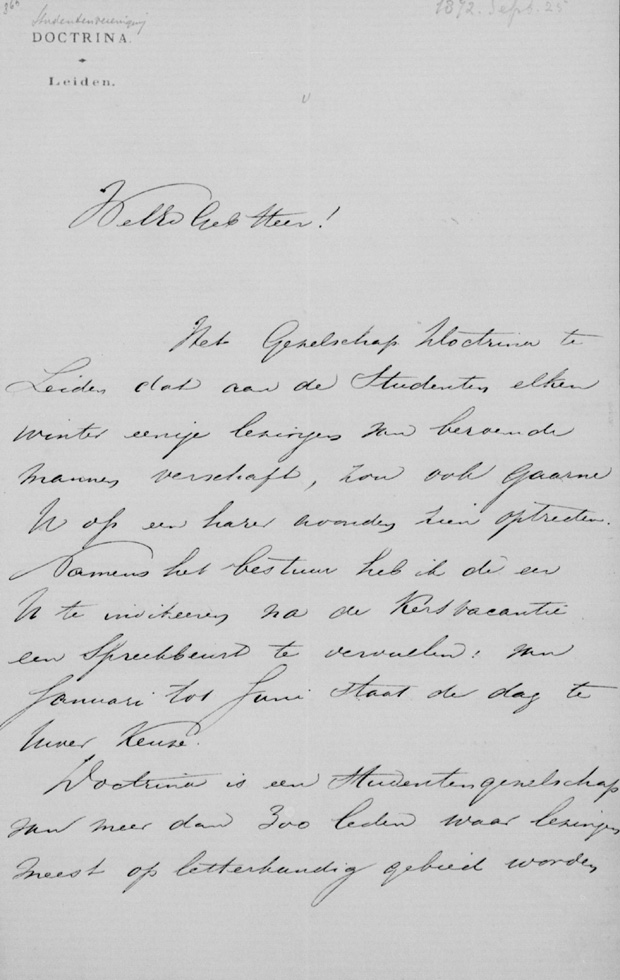 Studentenvereniging
1892. Sept. 25
DOCTRINA.
Leiden.
WelEd Geb Heer!
Het Gezelschap Doctrina te
Leiden dat aan de Studenten elken
winter eenige lezingen van beroemde
mannen verschaft, zou ook gaarne
U op een harer avonden zien optreden.
Namens het bestuur heb ik de eer
U te inviteeren na de Kerstvacantie
een Spreekbeurt te vervullen: van
Januari tot Juni staat de dag te
Uwer Keuse.
Doctrina is een Studentengezelschap
van meer dan 300 leden waar lezingen
meest op letterkundig gebied worden